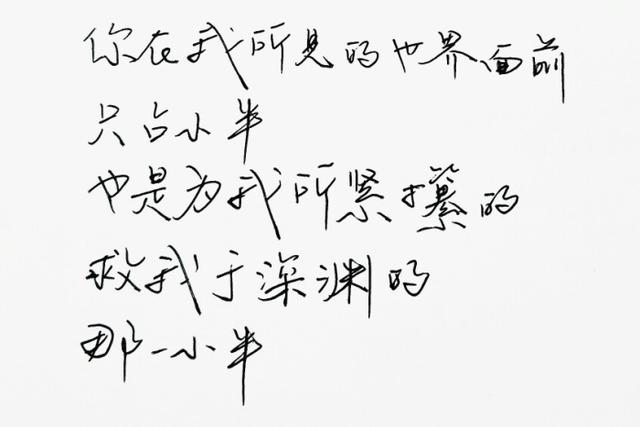 你在我所见的世界面前
只占小半
也是为我所紧攥的
救我于深渊的
那一小半